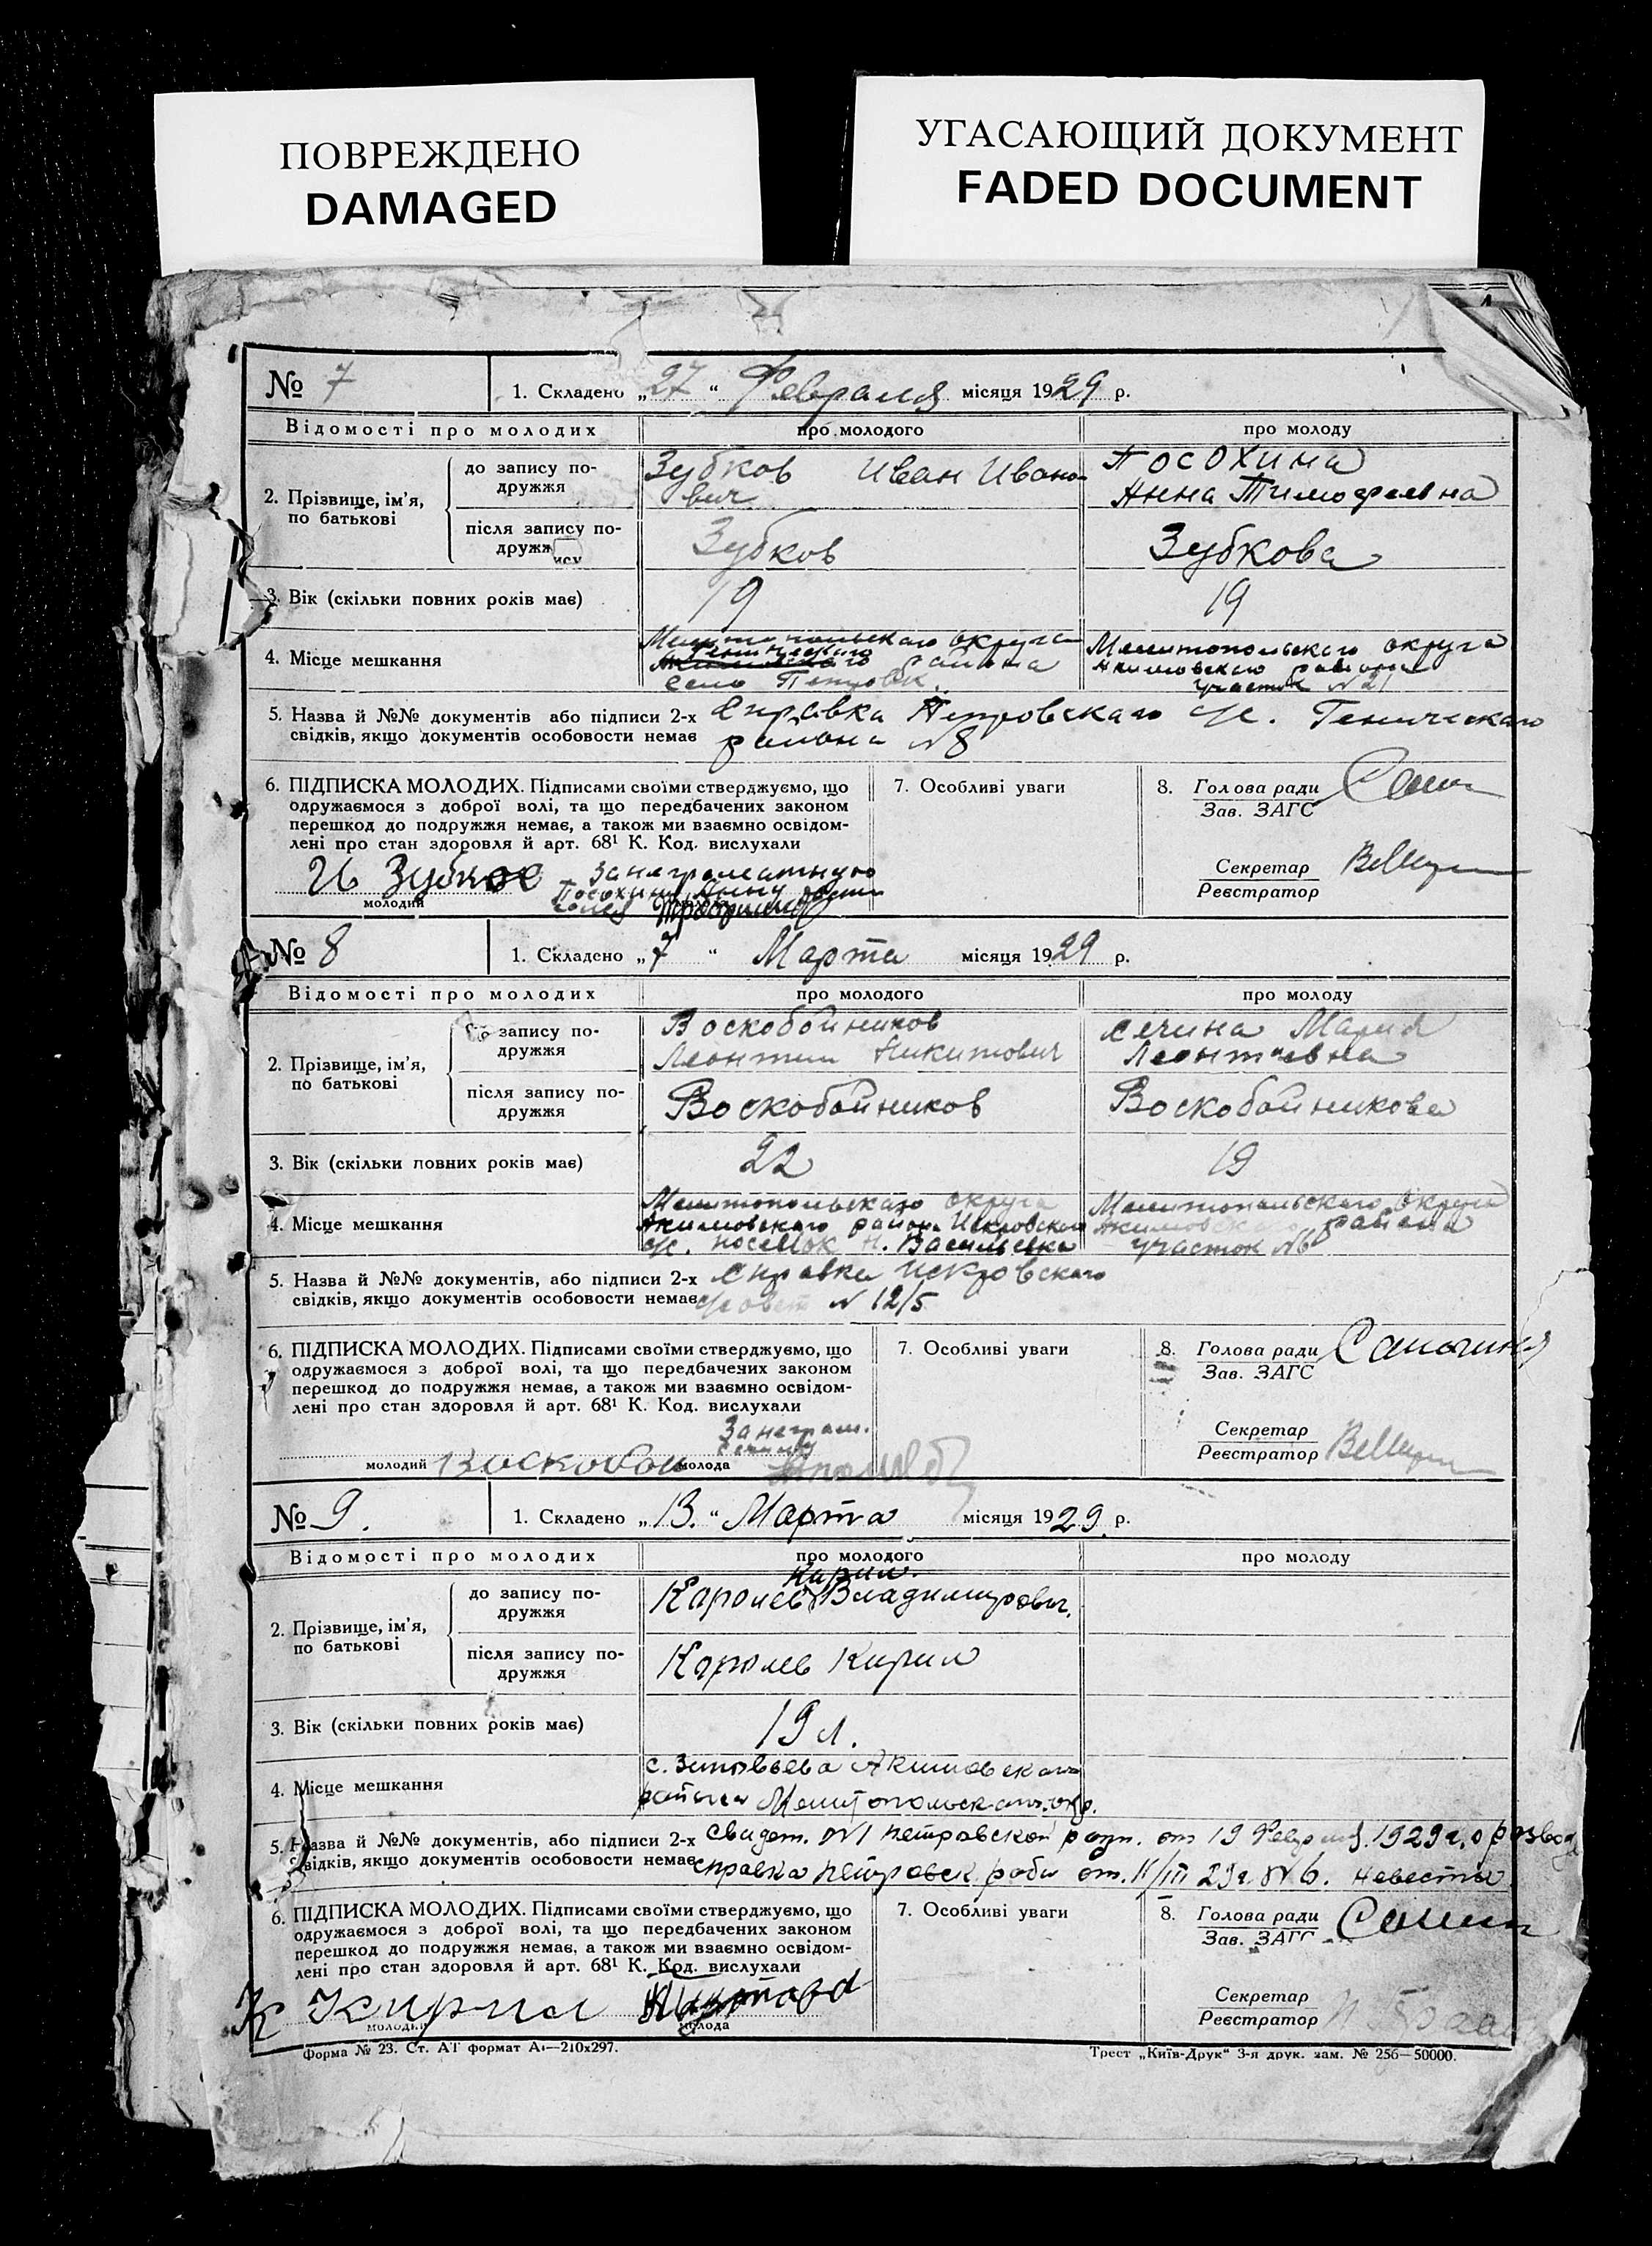 ПОВРЕЖДЕНО
DAMAGED
УГАСАЮЩИЙ ДОКУМЕНТ
FADED DOCUMENT
№ 7 1. Складено „27“ Февраля місяця 1929 р.
Відомості про молодих про молодого про молоду
2. Прізвище, ім’я, по батькові
до запису подружжя Зубков Иван Иванович Посохина Анна Тимофеевна
після запису подружжя Зубков Зубкова
3. Вік (скільки повних років має) 19 19
4. Місце мешкання Мелитопольского округа Генического района село Петровск. Мелитопольского округа Акимовского района участок №21
5. Назва й №№ документів або підписи 2-х Справка Петровского с/с. Генического
свідків, якщо документів особовости немає района №8
6. ПІДПИСКА МОЛОДИХ. Підписами своїми стверджуємо, що 7. Особливі уваги 8. Голова ради
одружаємося з доброї волі, та що передбачених законом Зав. ЗАГС
перешкод до подружжя немає, а також ми взаємно освідом-
лені про стан здоровля й арт. 68¹ К. Код. вислухали Секретар
И Зубков За неграмотную Реєстратор
Посохину Анну
молодий
№ 8 1. Складено „7“ Марта місяця 1929 р.
Відомості про молодих про молодого про молоду
2. Прізвище, ім’я, по батькові
до запису подружжя Воскобойников Леонтий Никитович Сечина Мария Леонтиевна
після запису подружжя Воскобойников Воскобойникова
3. Вік (скільки повних років має) 22 19
4. Місце мешкання Мелитопольского округа Акимовского района Искровского с/с. поселок Н. Васильевка Мелитопольского округа Акимовского района участок №6
5. Назва й №№ документів, або підписи 2-х Справка Искровского
свідків, якщо документів особовости немає с/совет № 12/5
6. ПІДПИСКА МОЛОДИХ. Підписами своїми стверджуємо, що 7. Особливі уваги 8. Голова ради
одружаємося з доброї волі, та що передбачених законом Зав. ЗАГС
перешкод до подружжя немає, а також ми взаємно освідом-
лені про стан здоровля й арт. 68¹ К. Код. вислухали Секретар
За неграм. Реєстратор
Сечину
молодий Воскобой молода
№ 9. 1. Складено „13.“ Марта місяця 1929. р.
Відомості про молодих про молодого про молоду
2. Прізвище, ім’я, по батькові
до запису подружжя Каролев Кирил. Владимирович.
після запису подружжя Каролев Кирил
3. Вік (скільки повних років має) 19 л.
4. Місце мешкання с. Зиновьева Акимовского района Мелитопольского окр.
5. Назва й №№ документів, або підписи 2-х Свидет. №1 Петровской от 19 Февраля. 1929 г. о разводе
свідків, якщо документів особовости немає справка Петровск. от. 11/III 29 г. №6. невесты
6. ПІДПИСКА МОЛОДИХ. Підписами своїми стверджуємо, що 7. Особливі уваги 8. Голова ради
одружаємося з доброї волі, та що передбачених законом Зав. ЗАГС
перешкод до подружжя немає, а також ми взаємно освідом-
лені про стан здоровля й арт. 68¹ К. Код. вислухали Секретар
К Кирил Реєстратор
молодий молода
Форма № 23. Ст. АТ формат А₄—210x297. Трест „Київ-Друк“ 3-я друк. зам. № 256—50000.